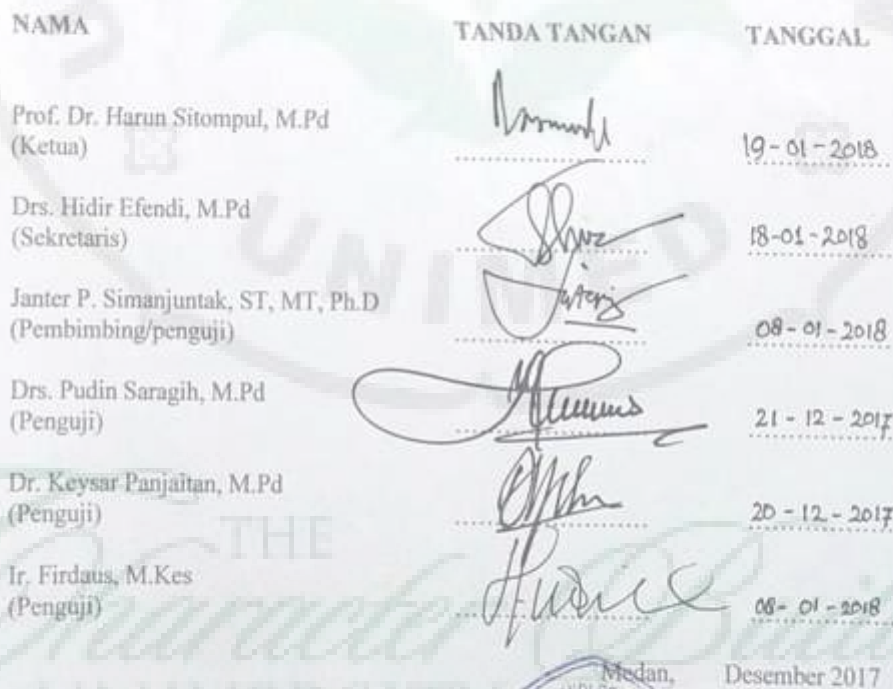 NAMA TANDA TANGAN TANGGAL
Prof. Dr. Harun Sitompul, M.Pd
(Ketua) 19-01-2018
Drs. Hidir Efendi, M.Pd
(Sekretaris) 18-01-2018
Janter P. Simanjuntak, ST, MT, Ph.D
(Pembimbing/penguji) 08-01-2018
Drs. Pudin Saragih, M.Pd
(Penguji) 21-12-2017
Dr. Keysar Panjaitan, M.Pd
(Penguji) 20-12-2017
Ir. Firdaus, M.Kes
(Penguji) 08-01-2018
Medan, Desember 2017
UNIMED
THE
Character Buil